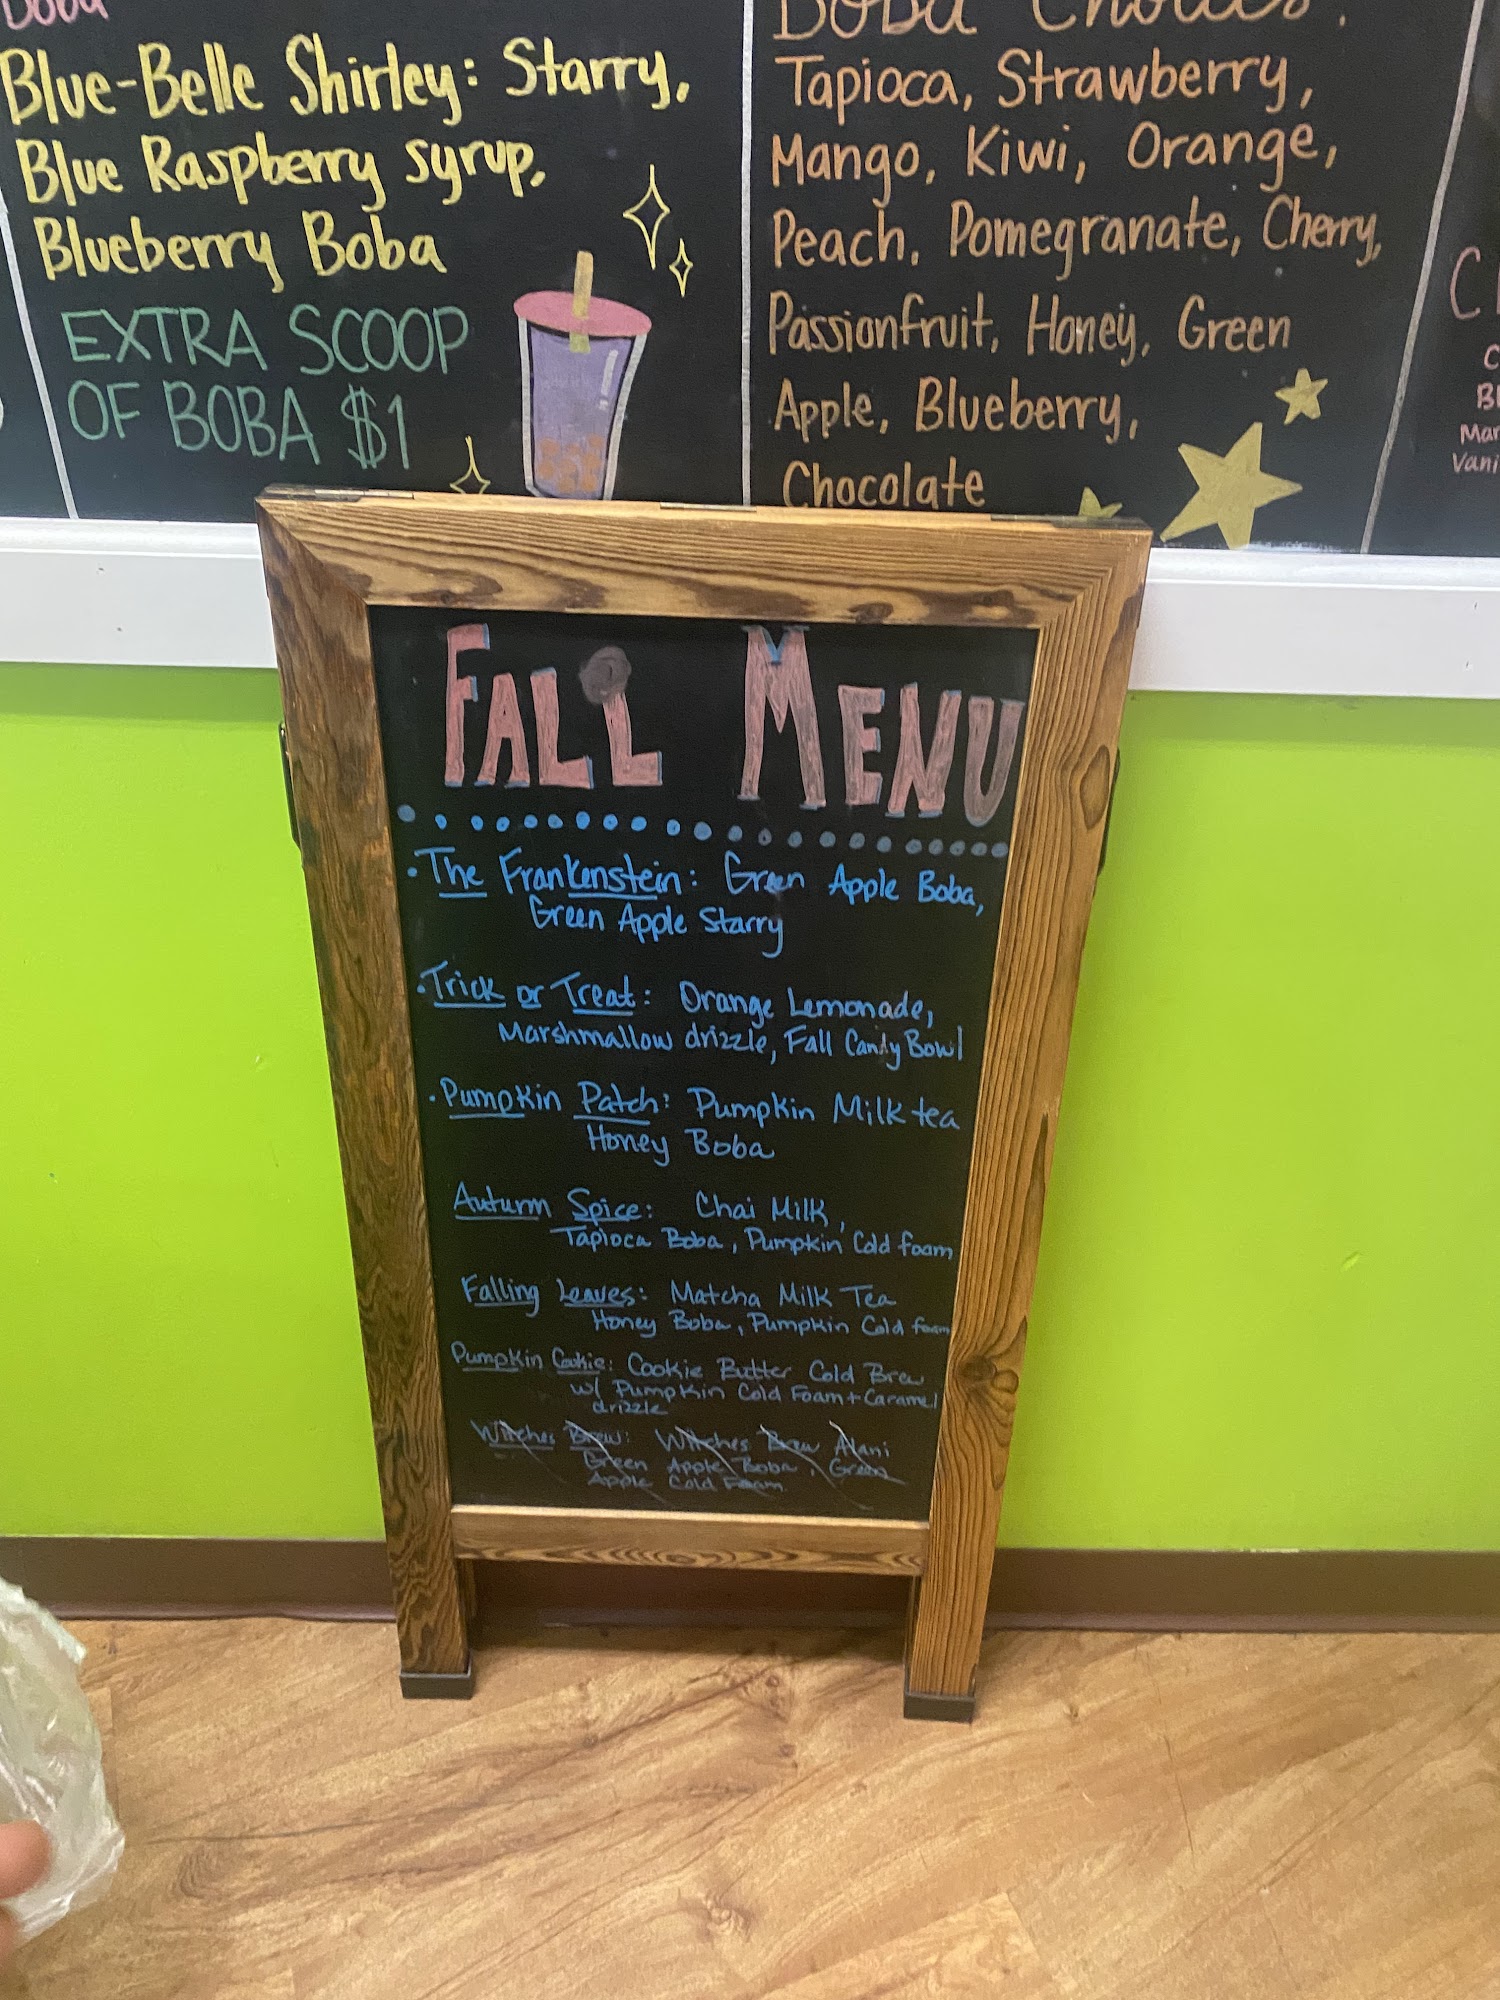 Boba
Blue-Belle Shirley: Starry,
Blue Raspberry syrup,
Blueberry Boba
EXTRA SCOOP
OF BOBA $1
Boba Choices:
Tapioca, Strawberry,
Mango, Kiwi, Orange,
Peach, Pomegranate, Cherry,
Passionfruit, Honey, Green
Apple, Blueberry,
Chocolate
FALL MENU
• The Frankenstein: Green Apple Boba,
Green Apple Starry
• Trick or Treat: Orange Lemonade,
Marshmallow drizzle, Fall Candy Bowl
• Pumpkin Patch: Pumpkin Milk tea
Honey Boba
Autumn Spice: Chai Milk,
Tapioca Boba, Pumpkin Cold foam
Falling Leaves: Matcha Milk Tea
Honey Boba, Pumpkin Cold foam
Pumpkin Cookie: Cookie Butter Cold Brew
w/ Pumpkin Cold Foam + Caramel
drizzle
Witches Brew: Witches Brew Alani
Green Apple Boba, Green
Apple Cold Foam